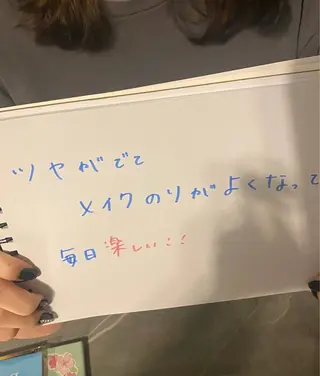 ツヤがでて
メイクのりがよくなって
毎日楽しい!!